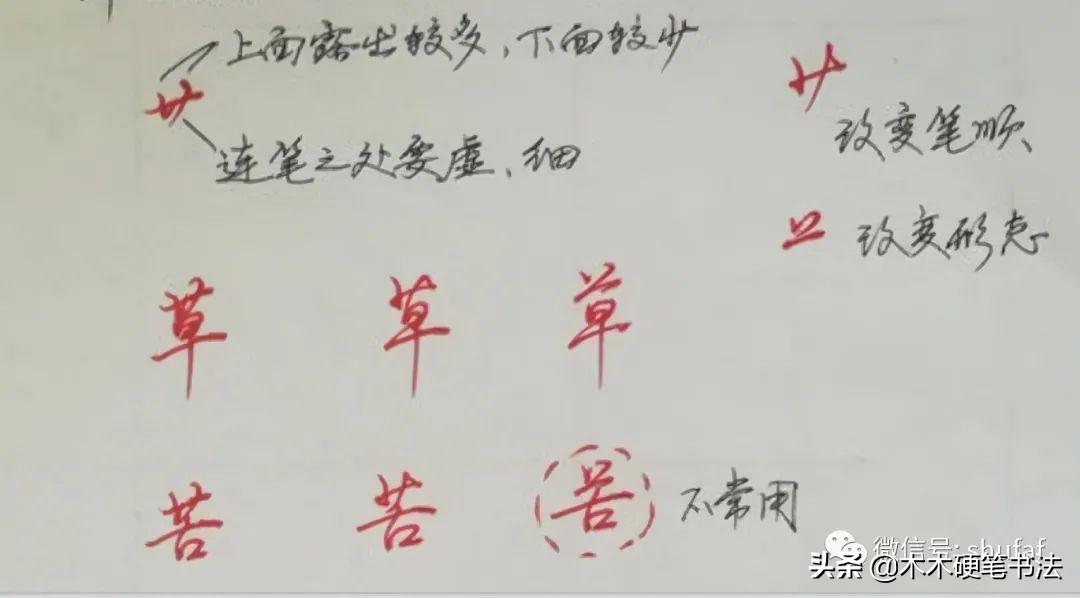 上面露出较多，下面较少
艹
连笔之处要虚、细
艹
改变笔顺
䒑
改变形态
草 草 草
苦 苦 苦 不常用
微信号: shufaf
头条 @木木硬笔书法